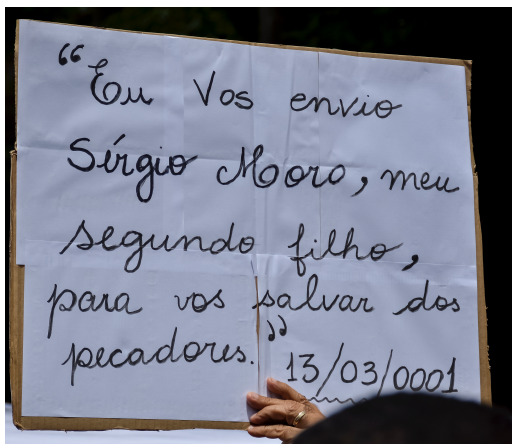 “Eu Vos envio
Sérgio Moro, meu
segundo filho,
para vos salvar dos
pecadores.”
13/03/0001